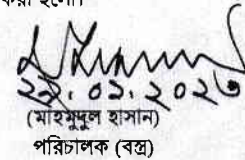 করা হলো।
২২.০২.২০২৩
(মাহমুদুল হাসান)
পরিচালক (বস্ত্র)